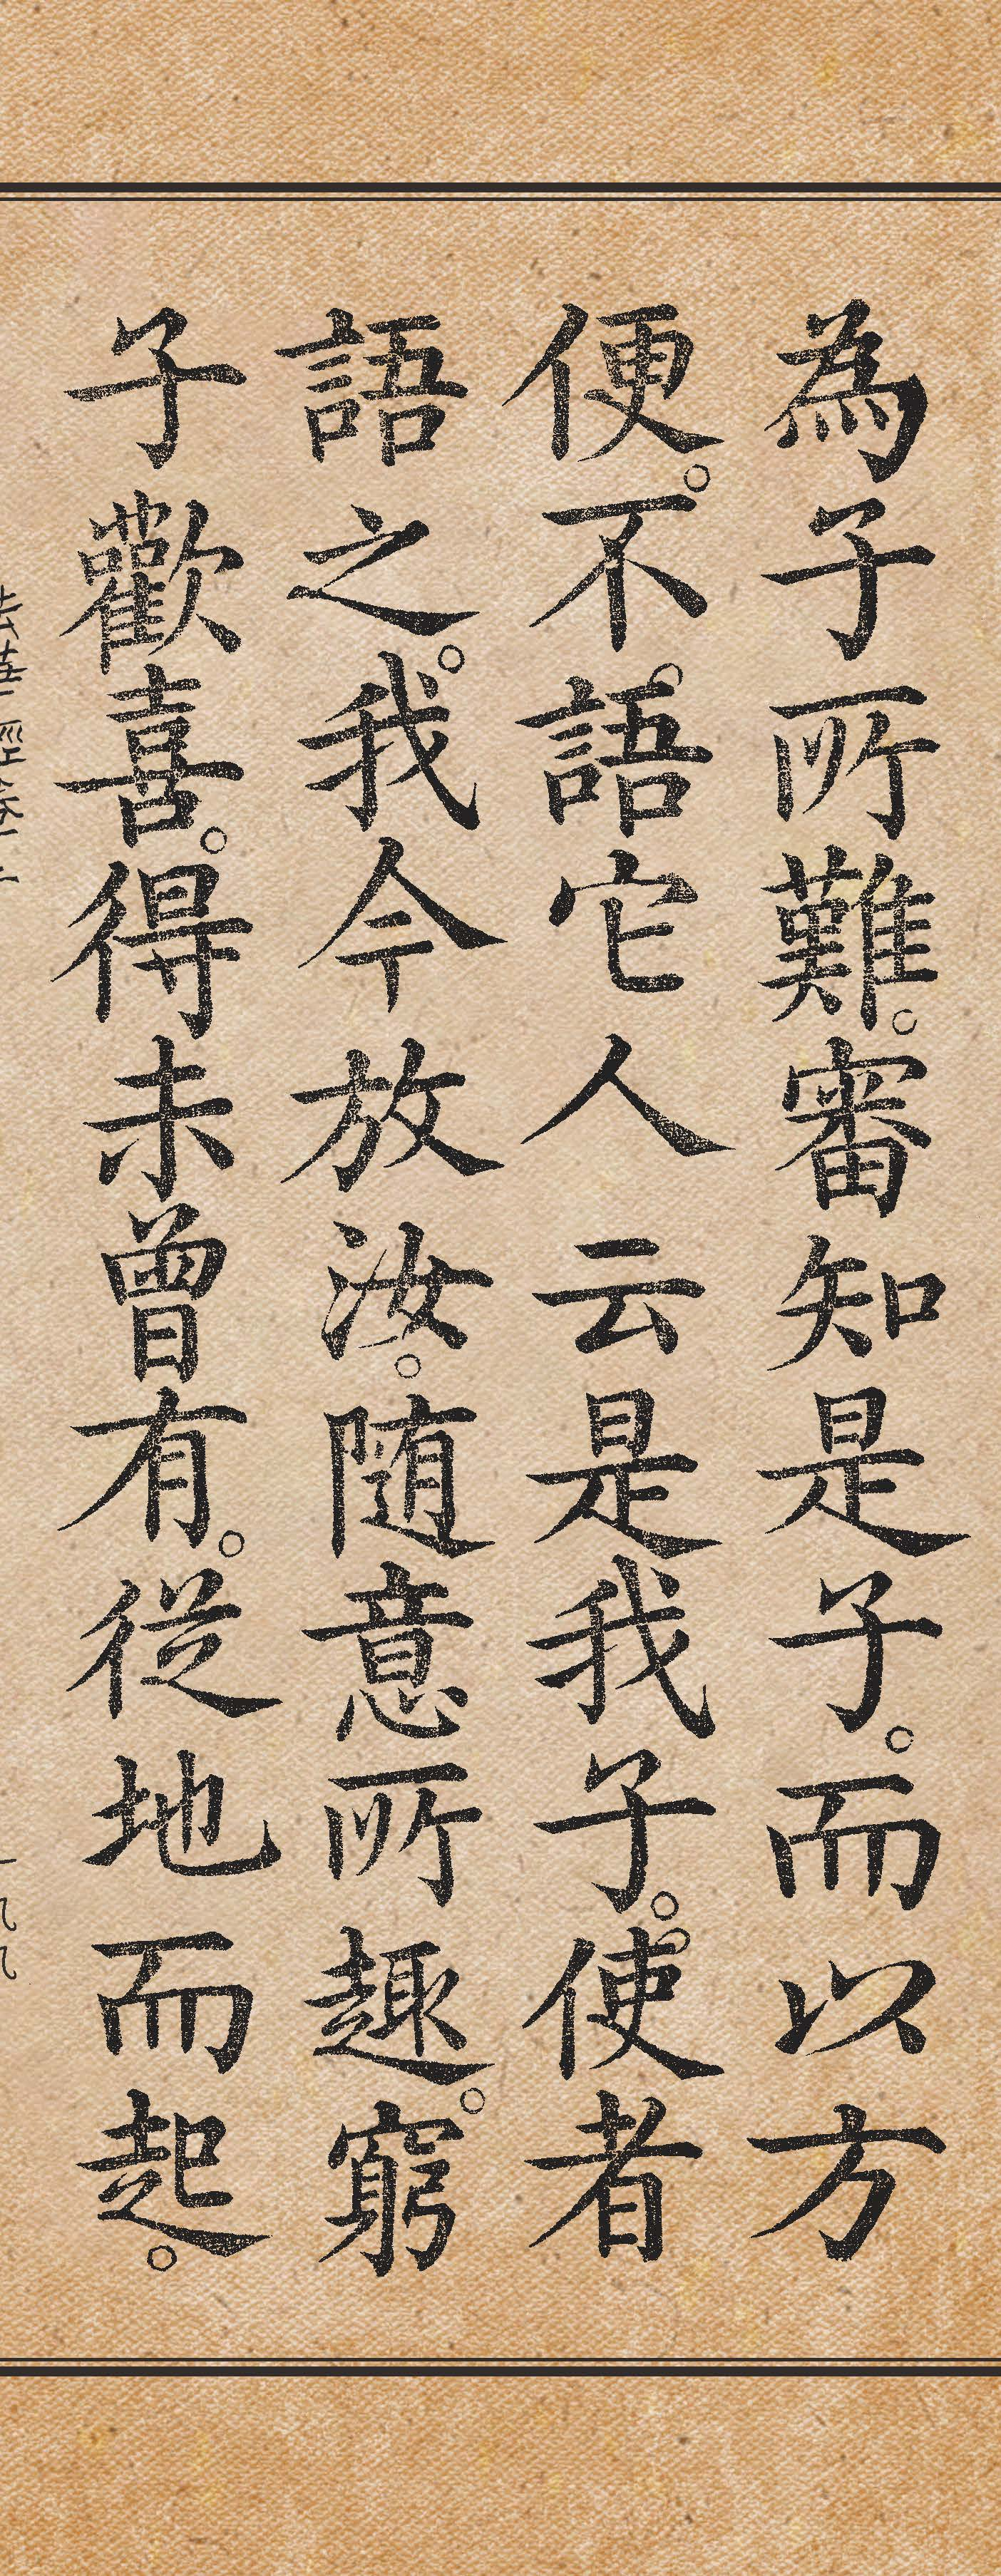 為子所難。審知是子。而以方
便。不。語它人云是我子。。使者
語之。我今放汝。隨意所趣。窮
子歡喜。得未曾有。從地而起。